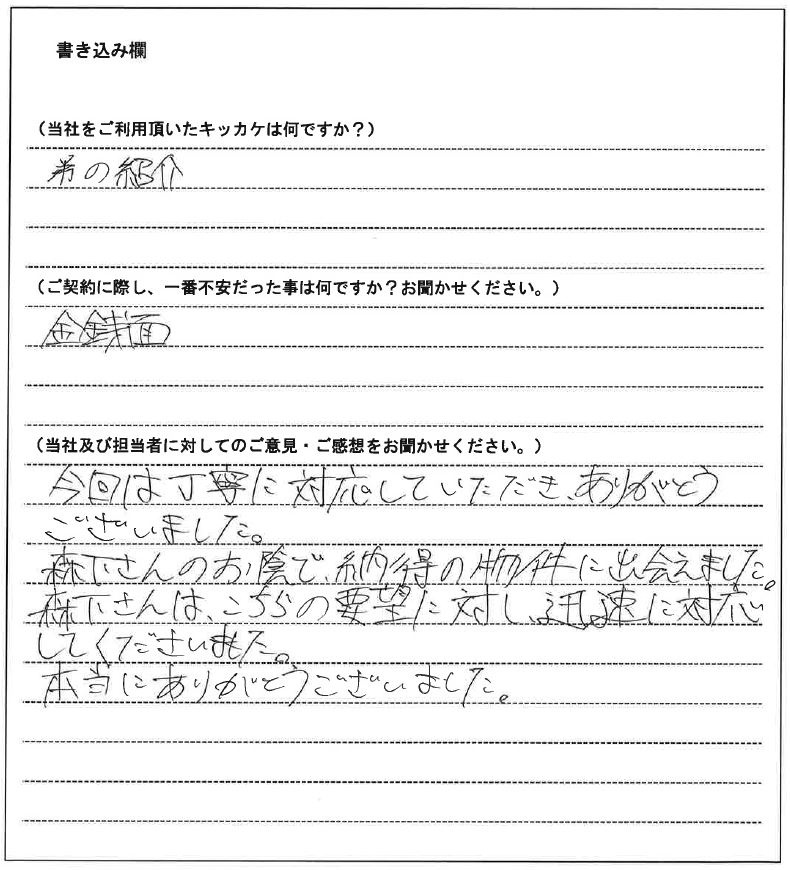 書き込み欄
（当社をご利用頂いたキッカケは何ですか？）
弟の紹介
（ご契約に際し、一番不安だった事は何ですか？お聞かせください。）
金銭面
（当社及び担当者に対してのご意見・ご感想をお聞かせください。）
今回は丁寧に対応していただき、ありがとう
ございました。
森下さんのお陰で、納得の物件に出会えました。
森下さんは、こちらの要望に対し、迅速に対応
してくださいました。
本当にありがとうございました。